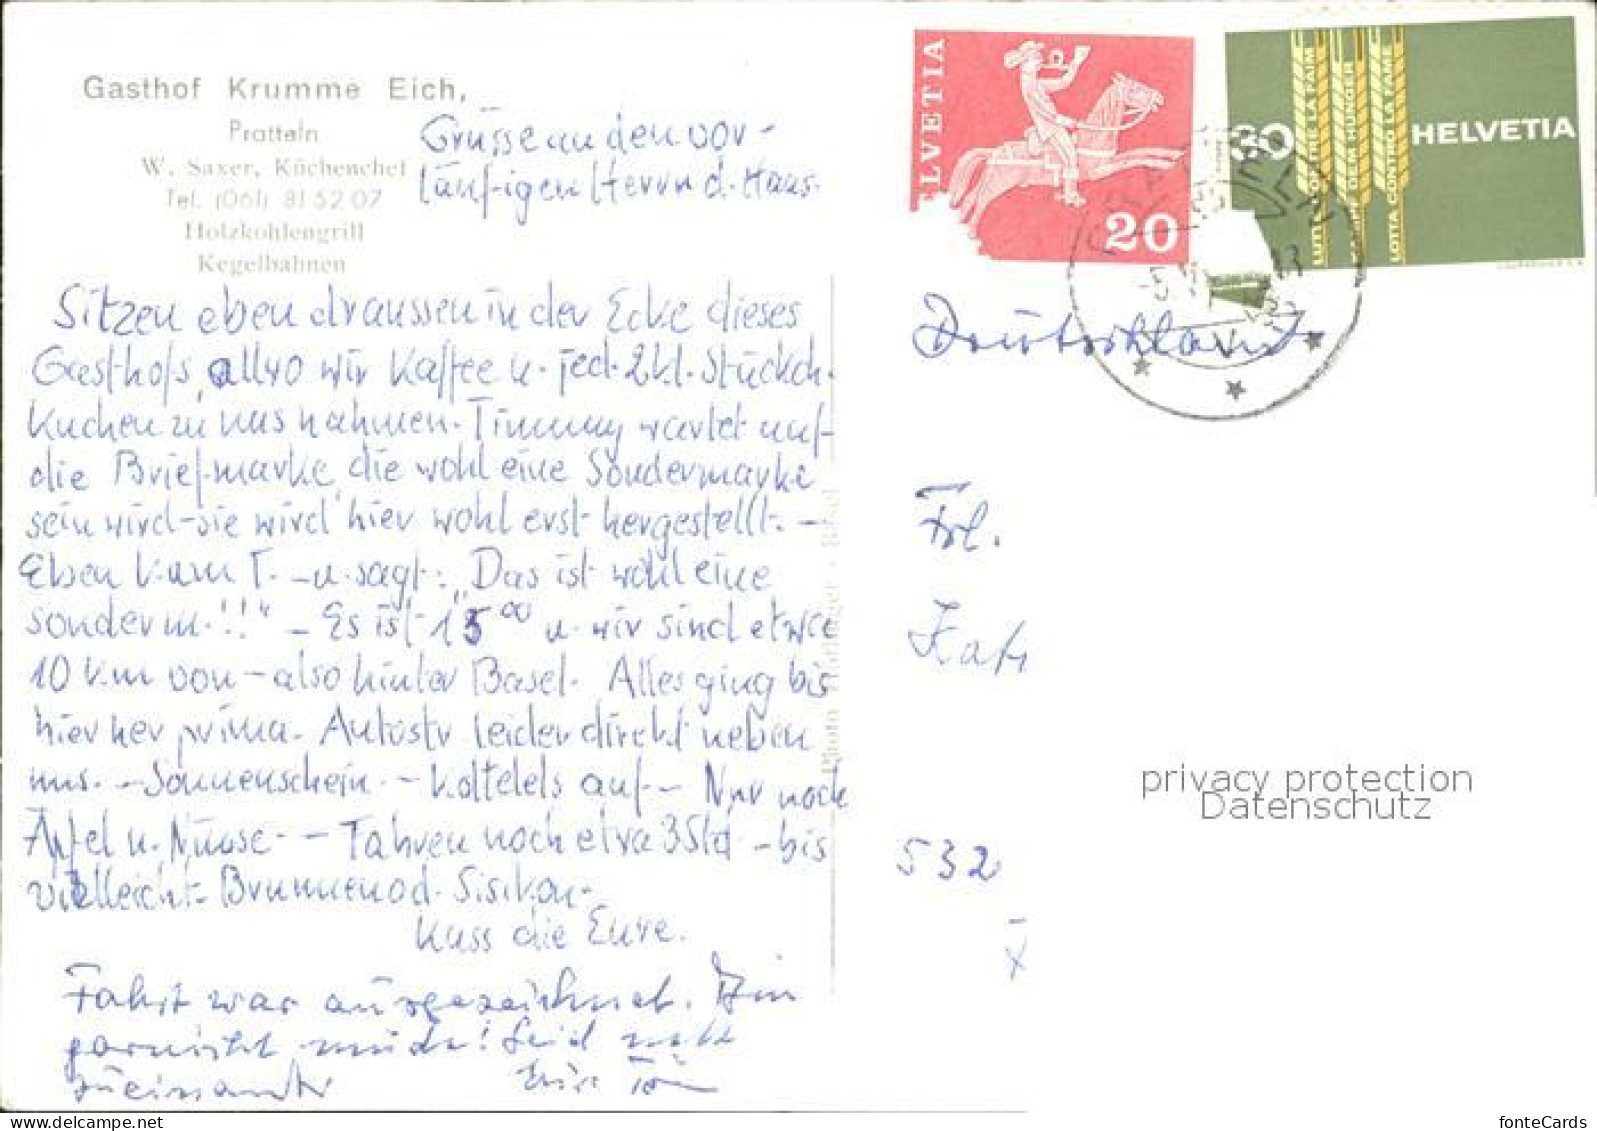 Gasthof Krumme Eich,
Pratteln
W. Saxer, Küchenchef
Tel. (061) 81 52 07
Holzkohlengrill
Kegelbahnen
Grüsse an den vor-
läufigen Herrn d. Haas.
Sitzen eben draussen in der Ecke dieses
Gasthofs, allwo wir Kaffee u. jed. 2 kl. Stückch.
Kuchen zu uns nahmen. Timmy wartet auf
die Briefmarke, die wohl eine Sondermarke
sein wird - sie wird hier wohl erst hergestellt. -
Eben kam T. - u. sagt: „Das ist wohl eine
sonderm.!!" - Es ist 15 00 u. wir sind etwa
10 km von - also hinter Basel. Alles ging bis
hierher prima. Autostr. leider direkt neben
uns. - Sonnenschein. - auf - Nur noch
Äpfel u. Nüsse. - - Fahren noch etwa 3 Std - bis
vielleicht Brunnen od. Sisikon.
Kuss die Eure.
Fahrt war ausgezeichnet. Bin
garnicht müde! Seid nett
zueinander
HELVETIA
20
30
LUTTE CONTRE LA FAIM
KAMPF DEM HUNGER
LOTTA CONTRO LA FAME
HELVETIA
Deutschland
Frl.
Kath
532
privacy protection
Datenschutz
fonteCards